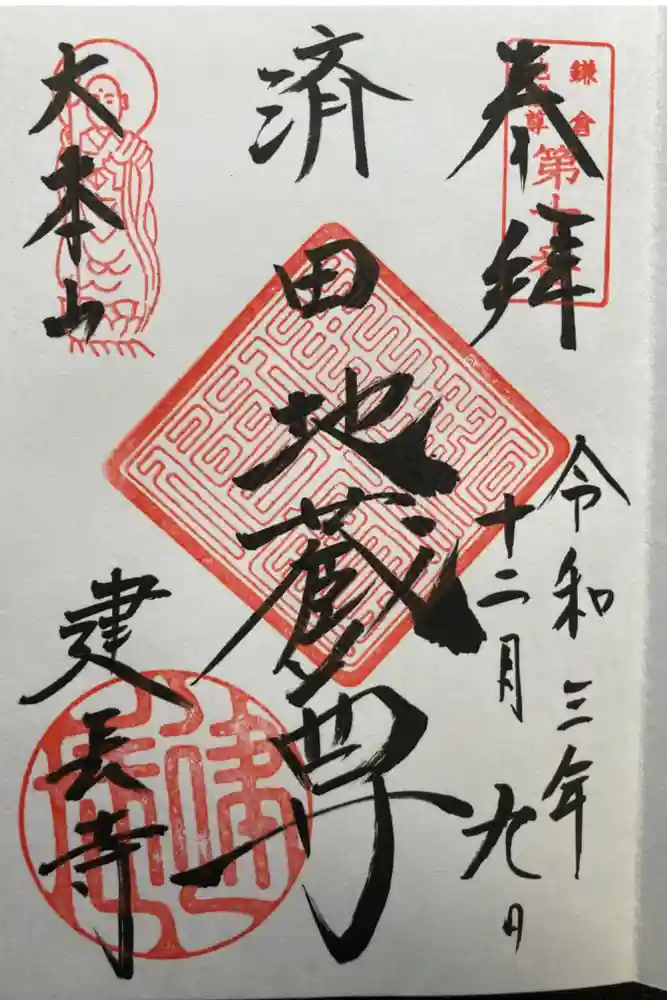 奉拝
令和三年
十二月九日
済田地蔵尊
大本山
建長寺
鎌倉
地蔵尊
第十番